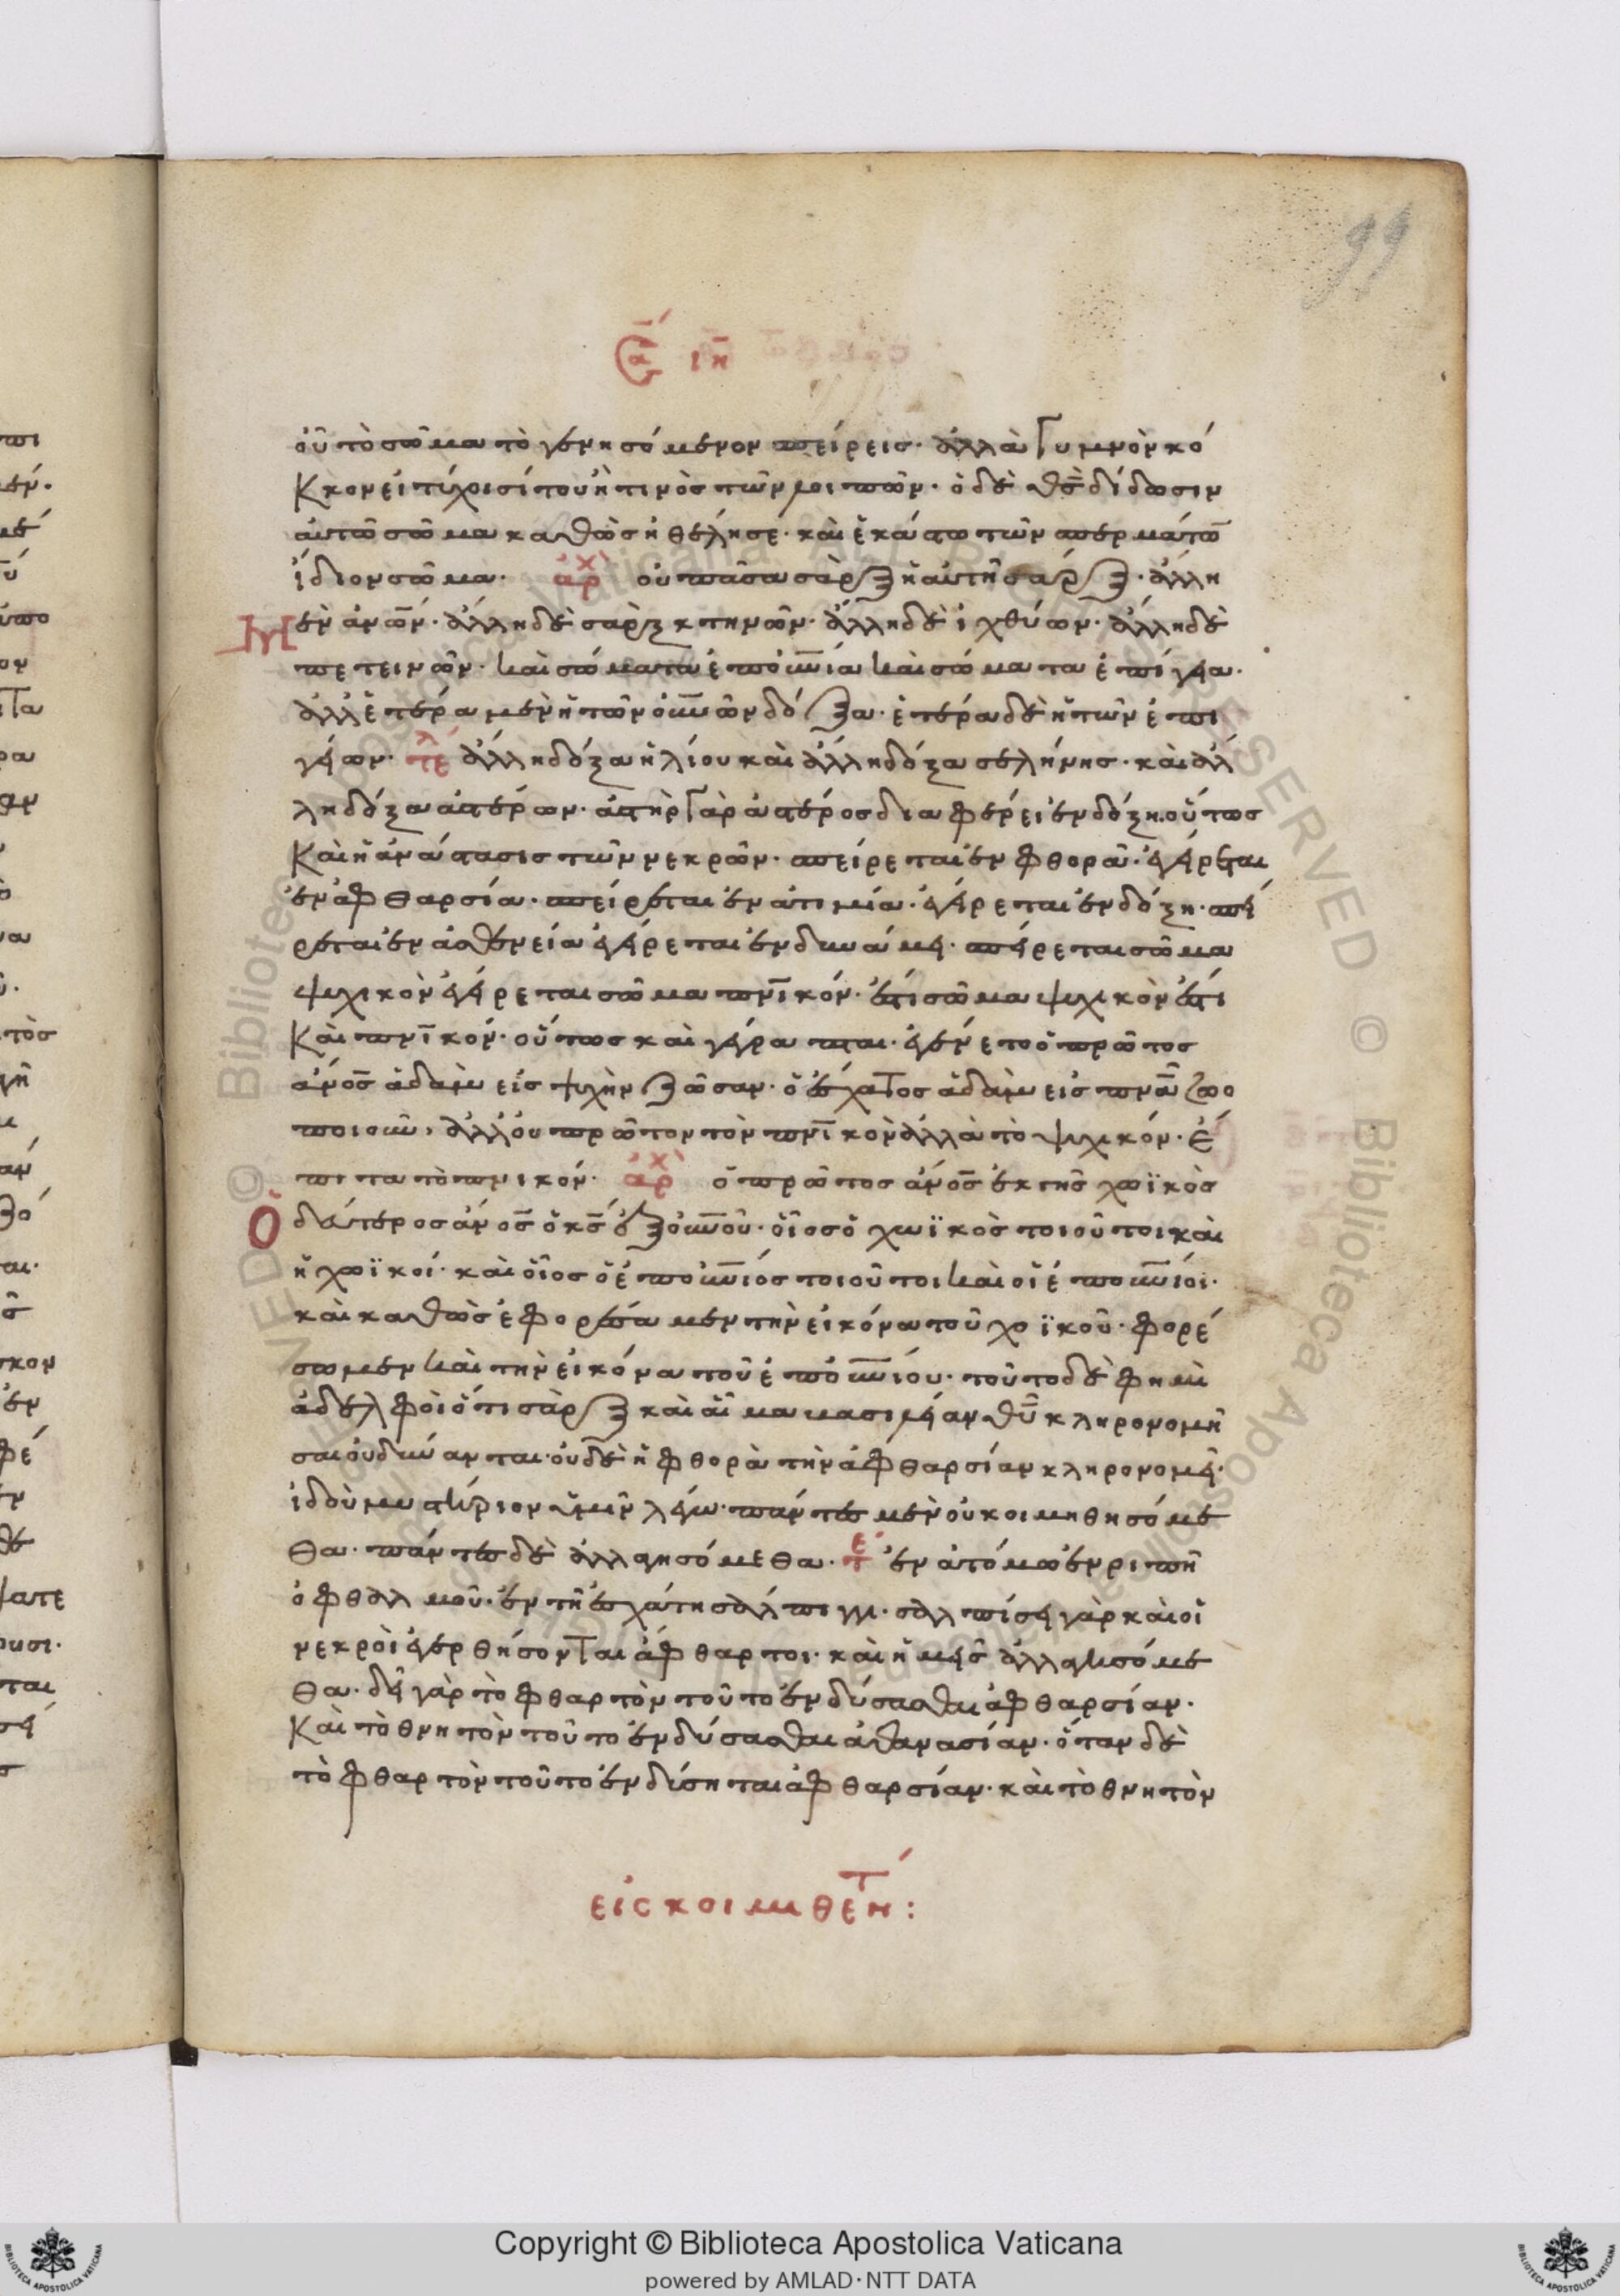 99
οὐ τὸ σῶμα τὸ γενησόμενον σπείρεις· ἀλλὰ γυμνὸν κό
κκον εἰ τύχοι σίτου ἤ τινος τῶν λοιπῶν· ὁ δὲ θς̅ δίδωσιν
αὐτῶ σῶμα καθὼς ἠθέλησε· καὶ ἑκάστω τῶν σπερμάτω̅
ἴδιον σῶμα· ἀρχ οὐ πᾶσα σὰρξ ἡ αὐτὴ σάρξ· ἄλλη
μὲν ἀνω̅ν· ἄλλη δὲ σὰρξ κτηνῶν· ἄλλη δὲ ἰχθύων· ἄλλη δὲ
πετεινῶν· καὶ σώματα ἐπουνία καὶ σώματα ἐπίγεα·
ἀλλ ἑτέρα μὲν ἡ τῶν οὐνῶν δόξα· ἑτέρα δὲ ἡ τῶν ἐπι
γείων· τέλ ἄλλη δόξα ἡλίου καὶ ἄλλη δόξα σελήνης· καὶ ἄλ
λη δόξα ἀστέρων· ἀστὴρ γὰρ ἀστέρος διαφέρει ἐν δόξη. οὕτως
καὶ ἡ ἀνάστασις τῶν νεκρῶν· σπείρεται ἐν φθορᾶ· ἐγείρεται
ἐν ἀφθαρσία· σπείρεται ἐν ἀτιμία· ἐγείρεται ἐν δόξη· σπεί
ρεται ἐν ἀσθενεία ἐγείρεται ἐν δυνάμει· σπείρεται σῶμα
ψυχικὸν ἐγείρεται σῶμα πνι̅κόν· ἐστὶ σῶμα ψυχικὸν ἐστὶ
καὶ πνι̅κόν· οὕτως καὶ γέγραπται· ἐγένετο ὁ πρῶτος
ἀνὸς̅ ἀδὰμ εἰς ψυχὴν ζῶσαν· ὁ ἔσχατος ἀδὰμ εἰς πνᾶ̅ ζωο
ποιοῦν, ἀλλ οὐ πρῶτον τὸν πνι̅κὸν ἀλλὰ τὸ ψυχικόν· ἔ
πιτα τὸ πνικόν· ἀρχ ὁ πρῶτος ἀνὸς̅ ἐκ γῆς χωϊκὸς
ὁ δεύτερος ἀνος̅ ὁ κς̅ ἐξ οὐνοῦ· οἷος ὁ χωϊκὸς τοιοῦτοι καὶ
ἡ χωϊκοί· καὶ οἷος ὁ ἐπουνιός τοιοῦτοι καὶ οἱ ἐπουνίοι·
καὶ καθὼς ἐφορέσαμεν τὴν εἰκόνα τοῦ χοϊκοῦ· φορέ
σωμεν καὶ τὴν εἰκόνα τοῦ ἐπουνίου· τοῦτο δὲ φημὶ
ἀδελφοὶ ὅτι σὰρξ καὶ αἷμα βασιλείαν θυ̅ κληρονομῆ
σαι οὐ δύνανται· οὐδὲ ἡ φθορὰ τὴν ἀφθαρσίαν κληρονομεῖ·
ἰδοὺ μυστήριον ὑμῖν λέγω· πάντες μὲν οὐ κοιμηθησόμε
θα· πάντες δὲ ἀλλαγησόμεθα· τέ ἐν ἀτόμω ἐν ριπῆ
ὀφθαλμοῦ· ἐν τῆ ἐσχάτη σάλπιγγι· σαλπίσει γὰρ καὶ οἱ
νεκροὶ ἐγερθήσονται ἄφθαρτοι· καὶ ἡμεῖς ἀλλαγησόμε
θα· δεῖ γὰρ τὸ φθαρτὸν τοῦτο ἐνδύσασθαι ἀφθαρσίαν·
καὶ τὸ θνητὸν τοῦτο ἐνδύσασθαι ἀθανασίαν· ὅταν δὲ
τὸ φθαρτὸν τοῦτο ἐνδύσηται ἀφθαρσίαν· καὶ τὸ θνητὸν
εἰς κοιμηθέντ:
Copyright © Biblioteca Apostolica Vaticana
powered by AMLAD·NTT DATA